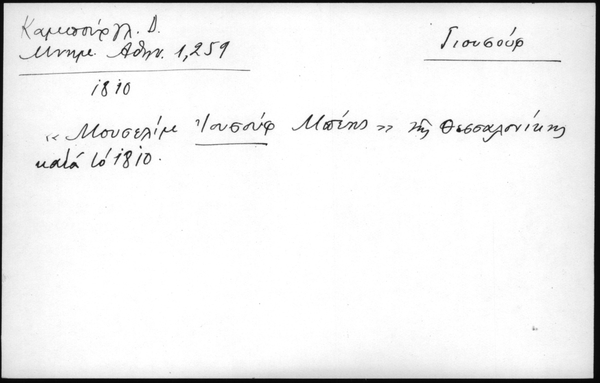 Καμπούργλ. Δ.
Μνημ. Αθην. 1,259
Γιουσούφ
1810
« Μουσελίμ Ἰουσούφ Μπέης » τῆς Θεσσαλονίκης
κατά τό 1810.